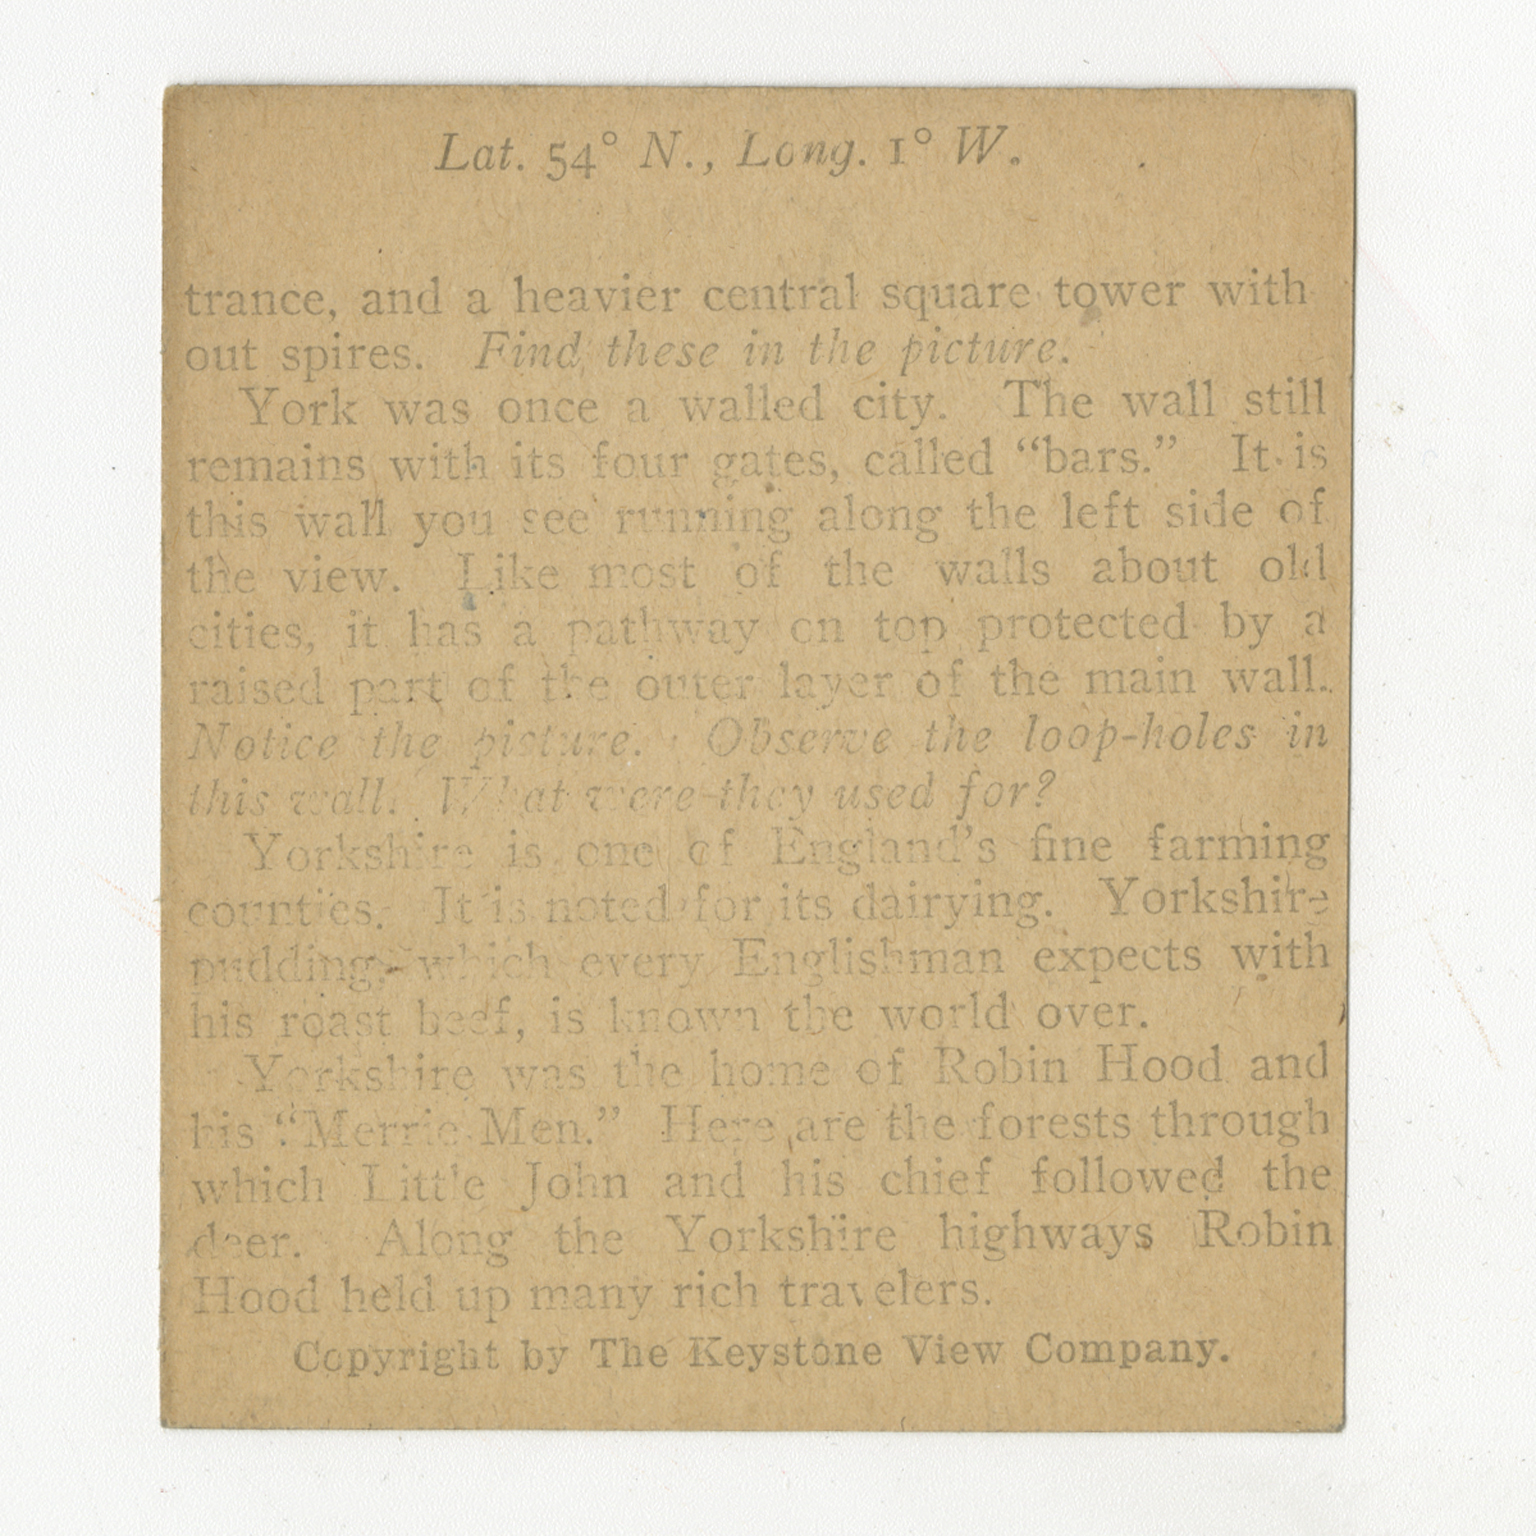 Lat. 54° N., Long. 1° W.
trance, and a heavier central square tower with
out spires. Find these in the picture.
York was once a walled city. The wall still
remains with its four gates, called “bars.” It is
this wall you see running along the left side of
the view. Like most of the walls about old
cities, it has a pathway on top protected by a
raised part of the outer layer of the main wall.
Notice the picture. Observe the loop-holes in
this wall. What were they used for?
Yorkshire is one of England’s fine farming
counties. It is noted for its dairying. Yorkshire
pudding, which every Englishman expects with
his roast beef, is known the world over.
Yorkshire was the home of Robin Hood and
his “Merrie Men.” Here are the forests through
which Little John and his chief followed the
deer. Along the Yorkshire highways Robin
Hood held up many rich travelers.
Copyright by The Keystone View Company.